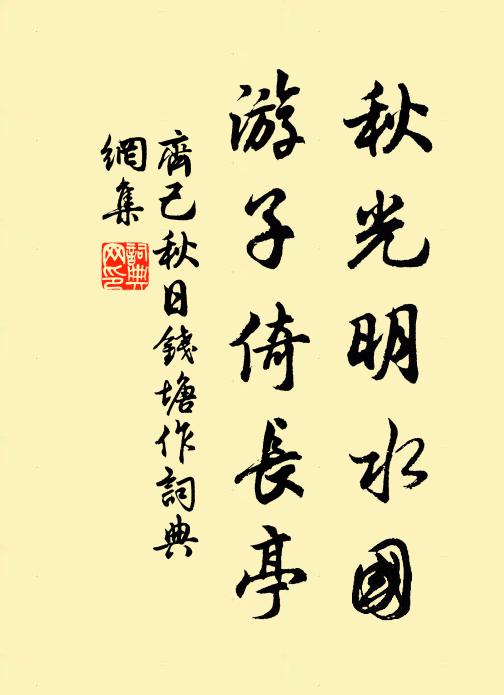 秋光明水國
游子倚長亭
齊己秋日錢塘作詞典
網集
詞典網印